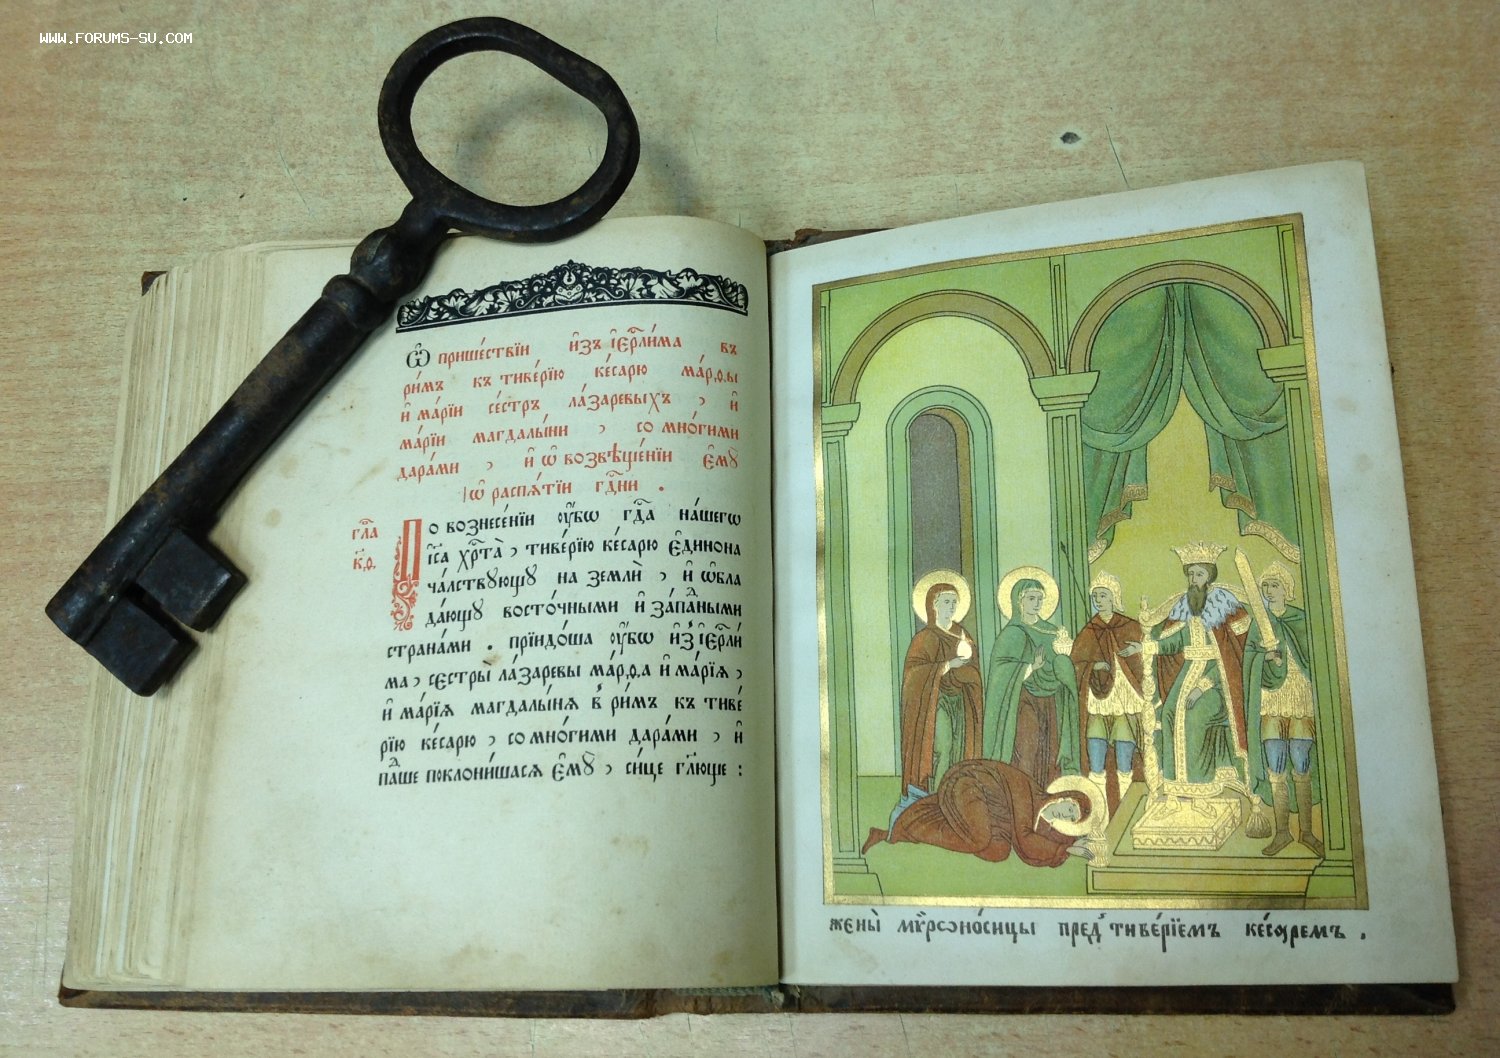 WWW.FORUMS-SU.COM
Ѡ҆ прише́ствїи и҆зъ і҆ерⷭ҇ли́ма въ
ри́мъ къ тиве́рїю ке́сарю ма́рѳы
и҆ ма́рїи се́стръ ла́заревыхъ, и҆
ма́рїи магдалы́ни, со мно́гими
дара́ми, и҆ ѡ҆ возвѣще́нїи є҆мꙋ̀
ѡ҆ распѧ́тїи гдⷭ҇ни.
гла̑
к҃ѳ.
По вознесе́нїи ᲂу҆́бѡ гдⷭ҇а на́шегѡ
і҆с҃а хрⷭ҇та̀, тиве́рїю ке́сарю є҆динона
ча́лствꙋющꙋ на землѝ, и҆ ѡ҆бла
да́ющꙋ восто́чными и҆ за́паⷣными
страна́ми. прїидо́ша ᲂу҆́бѡ и҆з̾ і҆ерⷭ҇ли́
ма, сестры̀ ла́заревы ма́рѳа и҆ ма́рїѧ,
и҆ ма́рїѧ магдалы́нѧ в̾ ри́мъ къ тиве́
рїю ке́сарю, со мно́гими дара́ми, и҆
па́ⷣше поклони́шасѧ є҆мꙋ̀, си́це гл҃юще:
жены̀ мѷрѡно́сицы преⷣ тиве́рїемъ ке́сѧремъ.